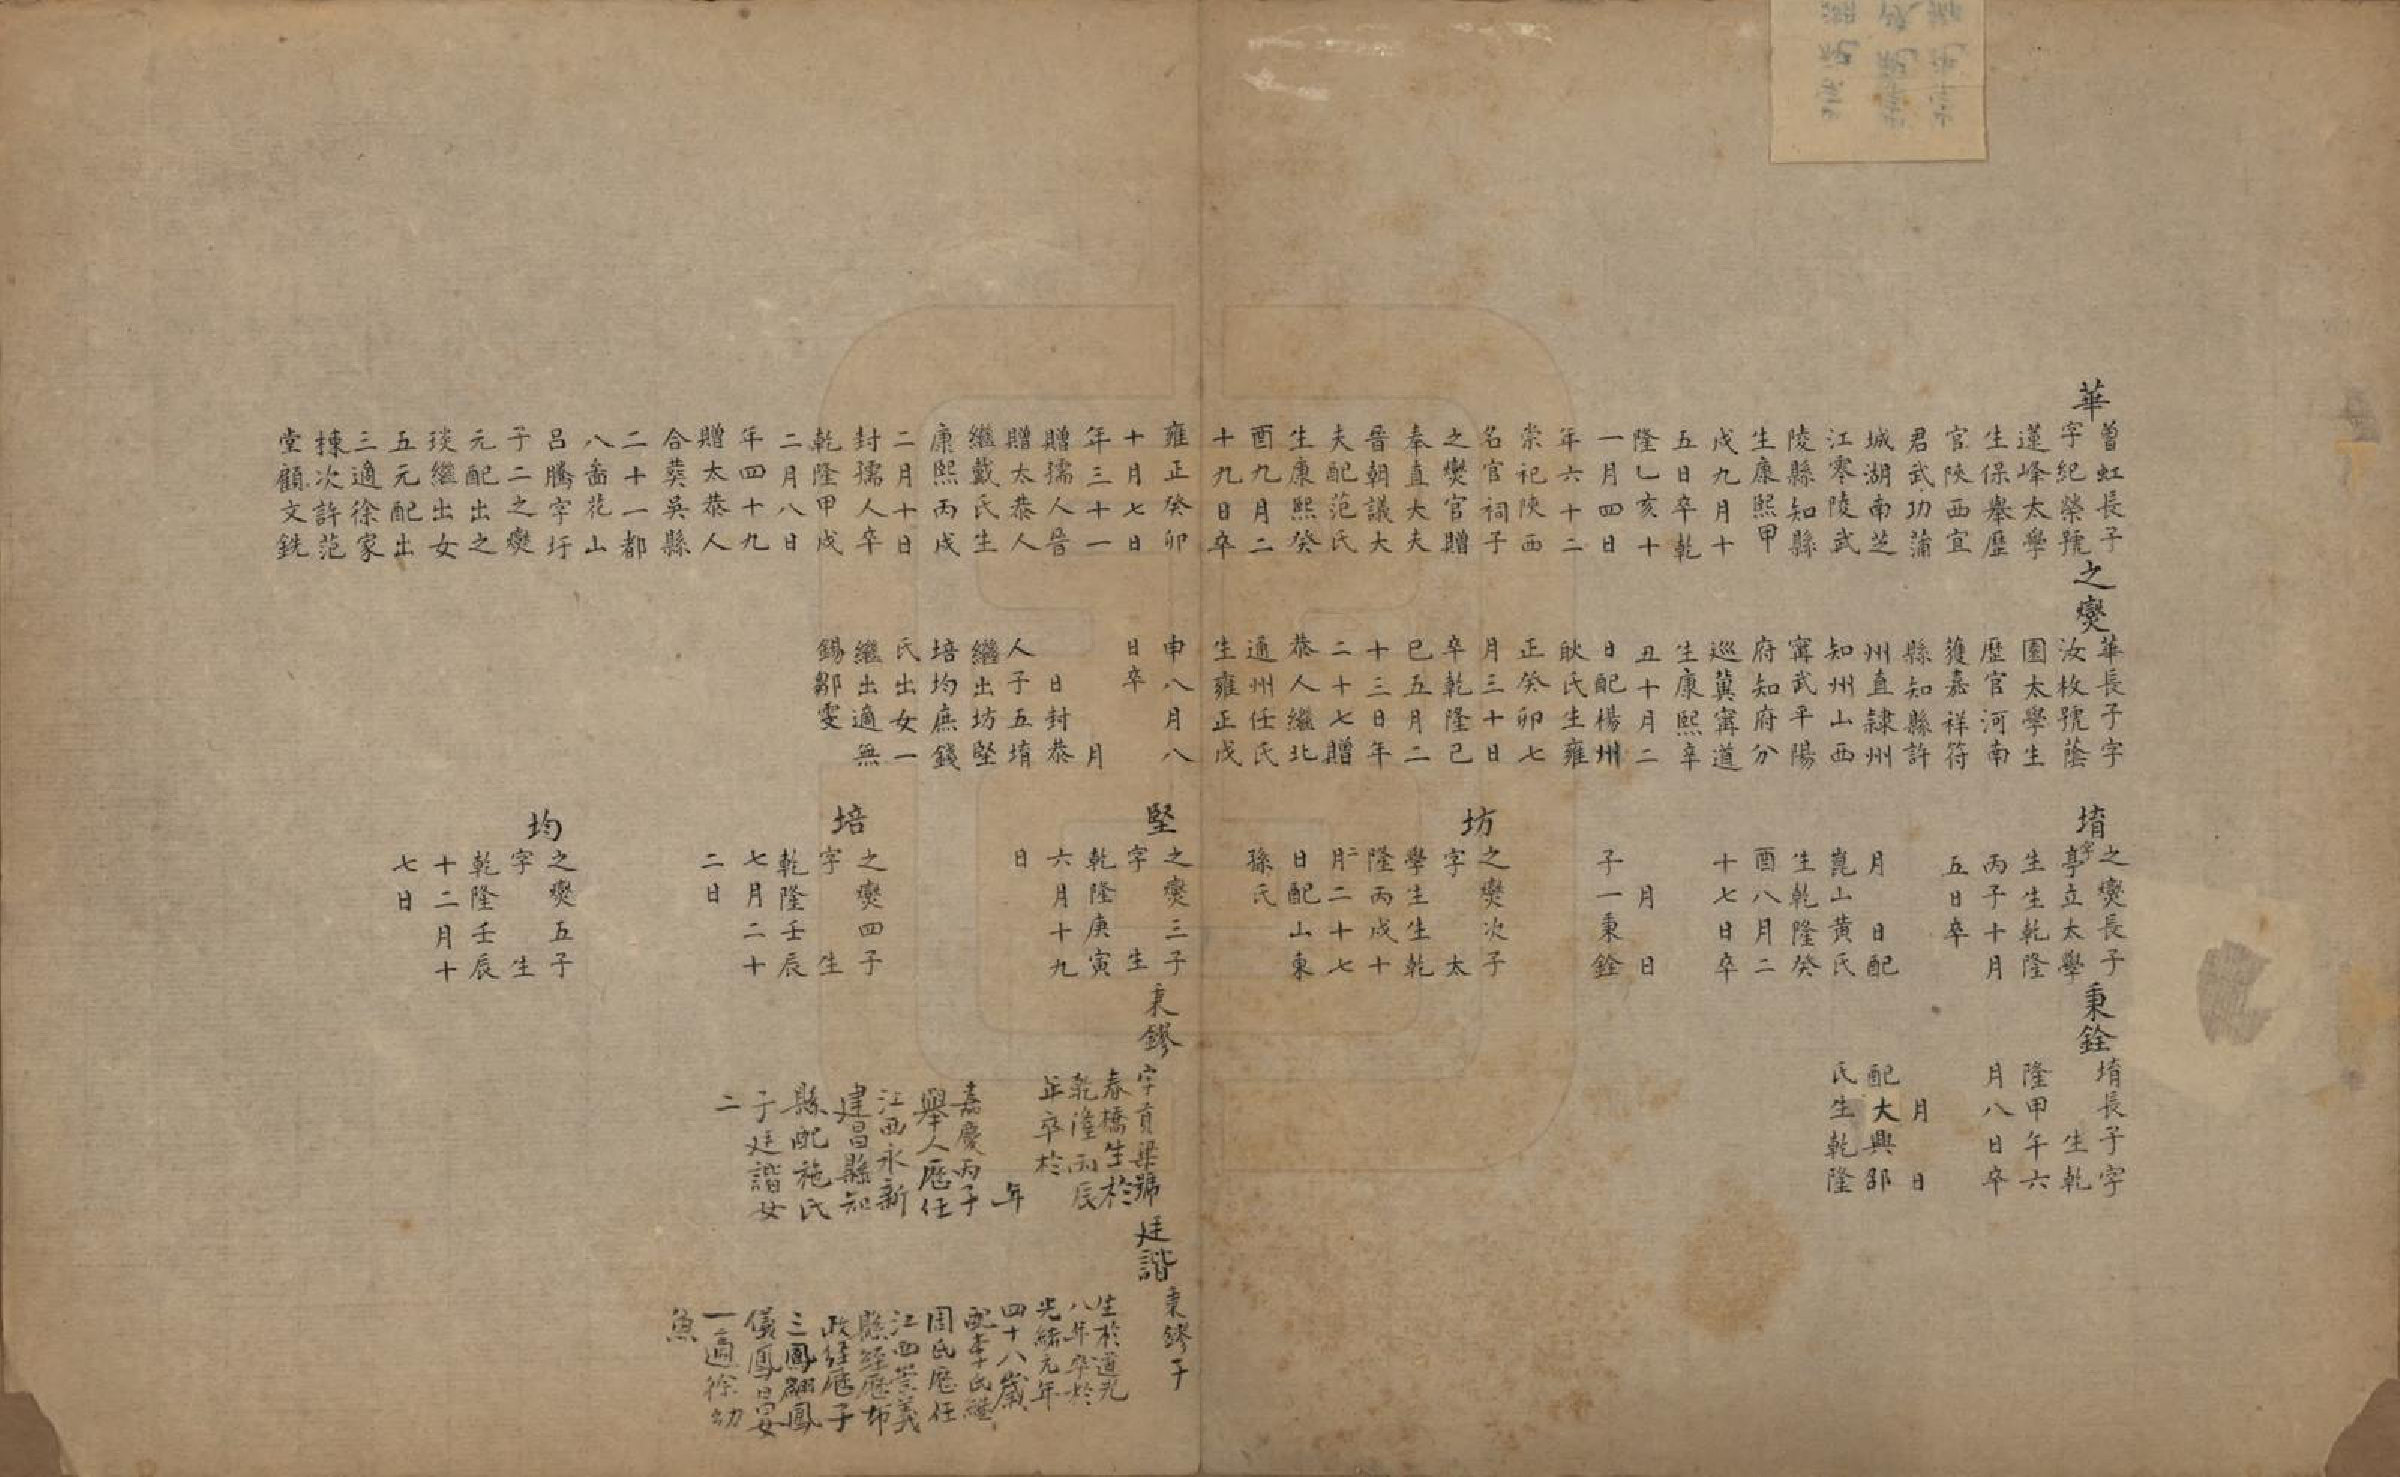 華
曾虹長子
字紀榮號
蓮峰太學
生保舉歷
官陝西宜
君武功蒲
城湖南芝
江零陵武
陵縣知縣
生康熙甲
戌九月十
五日卒乾
隆乙亥十
一月四日
年六十二
崇祀陝西
名官祠子
之燮官贈
奉直大夫
晉朝議大
夫配范氏
生康熙癸
酉九月二
十九日卒
雍正癸卯
十月七日
年三十一
贈孺人晉
贈太恭人
繼戴氏生
康熙丙戌
二月十日
封孺人卒
乾隆甲戌
二月八日
年四十九
贈太恭人
合葬吳縣
二十一都
八啚花山
呂騰字圩
子二之燮
元配出之
琰繼出女
五元配出
三適徐家
棟次許范
堂顧文銑
之燮
華長子字
汝枚號蔭
園太學生
歷官河南
獲嘉祥符
縣知縣許
州直隸州
知州山西
甯武平陽
府知府分
巡冀甯道
生康熙辛
丑十月二
日配楊州
耿氏生雍
正癸卯七
月三十日
卒乾隆己
巳五月二
十三日年
二十七贈
恭人繼北
通州任氏
生雍正戊
申八月八
日卒
月
日封恭
人子五堉
繼出坊堅
培均庶錢
氏出女一
繼出適無
錫鄒雯
堉
之燮長子
字亭立太學
生生乾隆
丙子十月
五日卒
月日配
崑山黃氏
生乾隆癸
酉八月二
十七日卒
月日
子一秉銓
坊
之燮次子
字太
學生生乾
隆丙戌十
二月二十七
日配山東
孫氏
堅
之燮三子
字生
乾隆庚寅
六月十九
日
培
之燮四子
字生
乾隆壬辰
七月二十
二日
均
之燮五子
字生
乾隆壬辰
十二月十
七日
秉銓
堉長子字
生乾
隆甲午六
月八日卒
月日
配大興邵
氏生乾隆
秉鏐
字貢梁號
春橋生於
乾隆丙辰
年卒於
年
嘉慶丙子
舉人歷任
江西永新
建昌縣知
縣配施氏
子廷諧女
二
廷諧
秉鏐子
生於道光
八年卒於
光緒元年
四十八歲
配李氏繼
周氏歷任
江西崇義
縣經歷布
政經歷子
三鳳翩鳳
儀鳳昌女
一適徐幼
魚